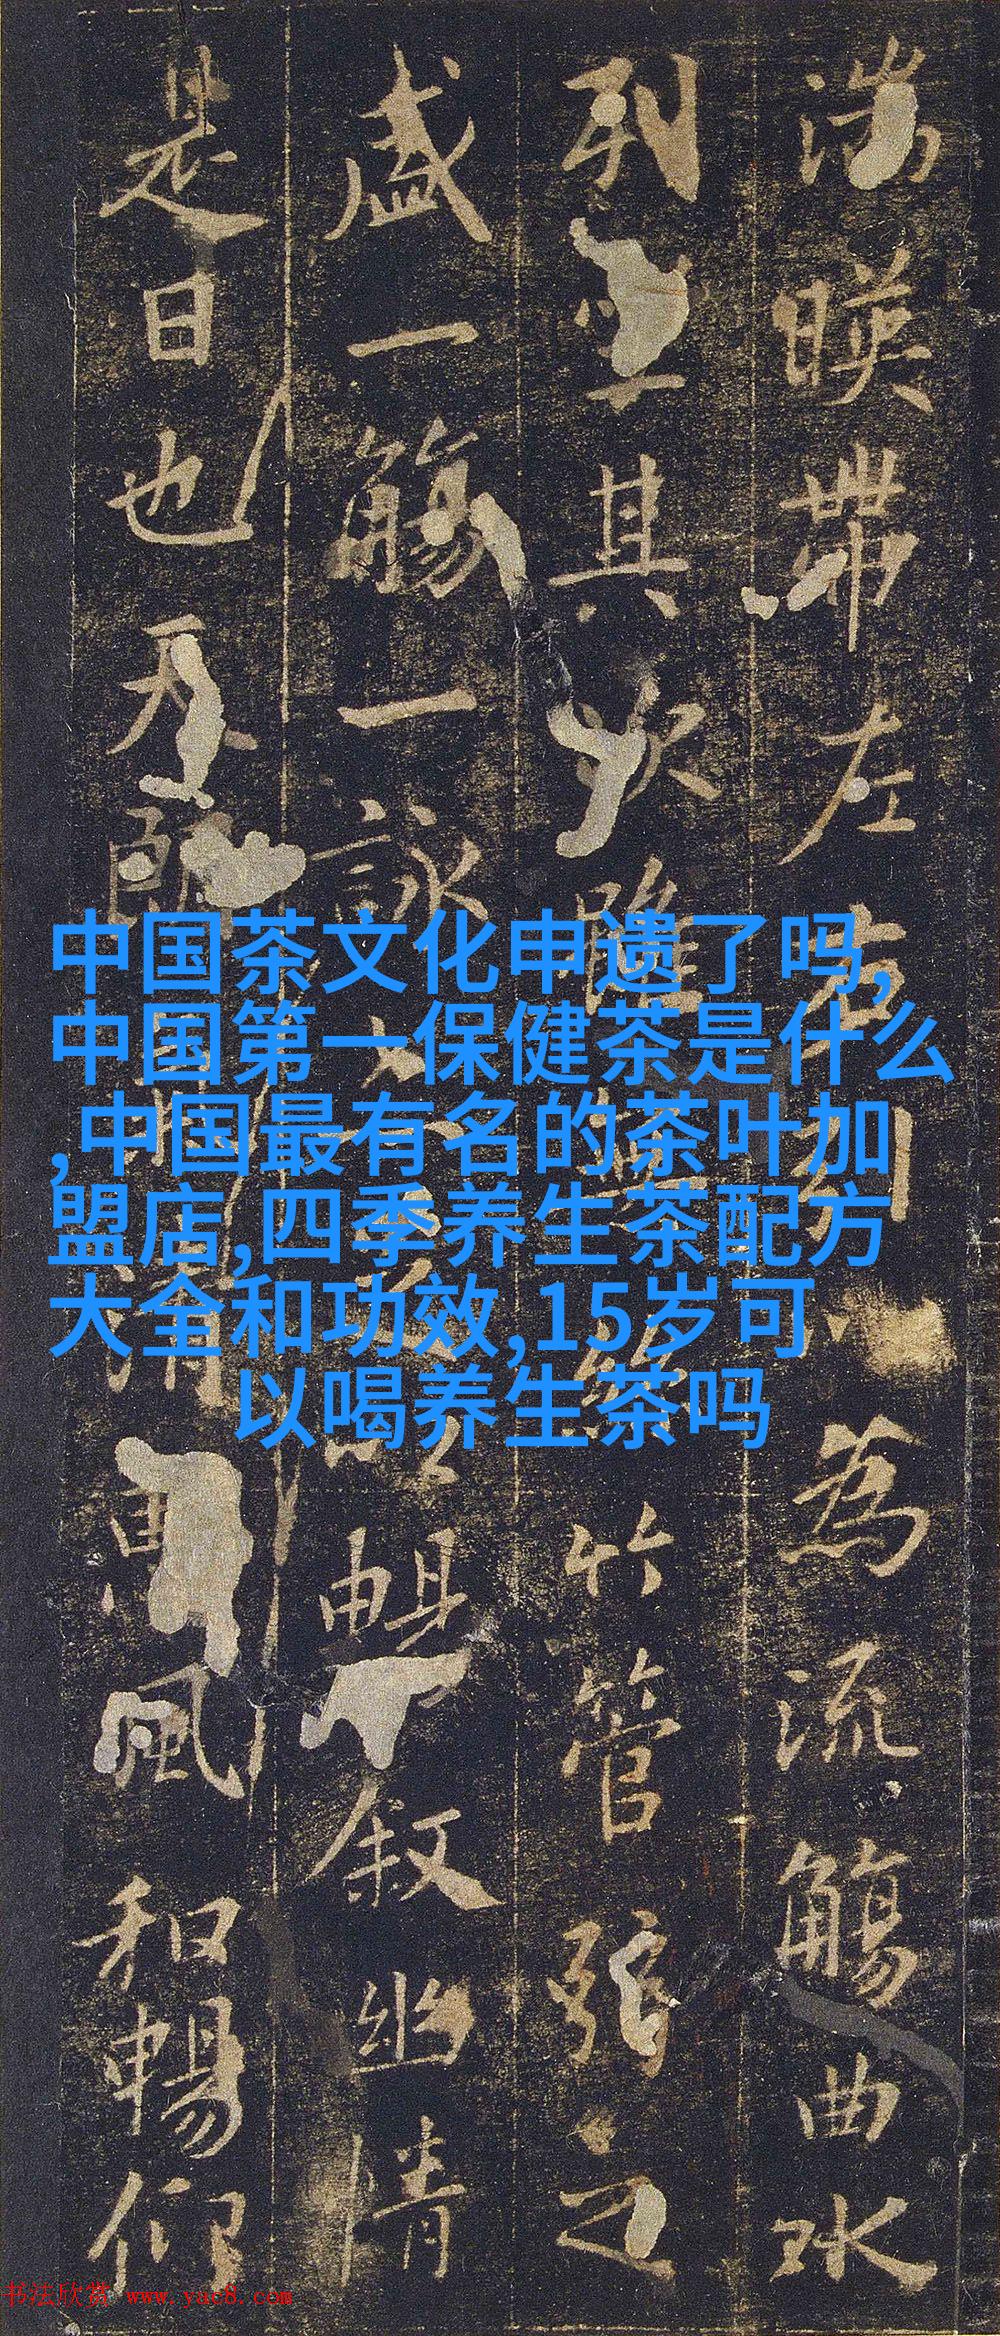 湍暎帶左右引為流觴曲水
列坐其次雖無絲竹管弦之
盛一觴一詠暢敘幽情
是日也天朗清惠風和暢仰
中国茶文化申遗了吗,
中国第一保健茶是什么
,中国最有名的茶叶加
盟店,四季养生茶配方
大全和功效,15岁可
以喝养生茶吗
书法欣赏 www.yac8.com